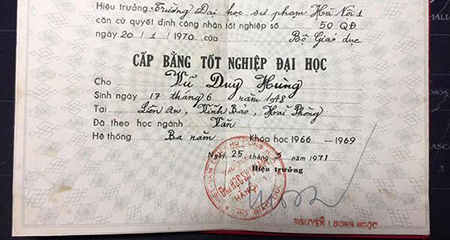 Hiệu trưởng Trường Đại học sư phạm Hà Nội 1
căn cứ quyết định công nhận tốt nghiệp số 50 QĐ
ngày 20 / 1 / 1970 của Bộ Giáo dục
CẤP BẰNG TỐT NGHIỆP ĐẠI HỌC
Cho Vũ Duy Hùng
Sinh ngày 17 tháng 6 năm 1948
Tại Liên Am, Vĩnh Bảo, Hải Phòng
Đã theo học ngành Văn
Hệ thống Ba năm Khóa học 1966 - 1969
Ngày 25 tháng năm 1971
Hiệu trưởng
HÀ NỘI
NGUYỄN LƯƠNG NGỌC